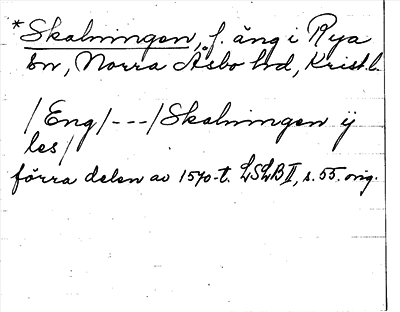 *Skalningen, f. äng i Rya
sn, Norra Åsbo hd, Krist.l.
/Eng/---/Skalningen ij
les/
förra delen av 1570-t. LSLB II, s. 55. orig.